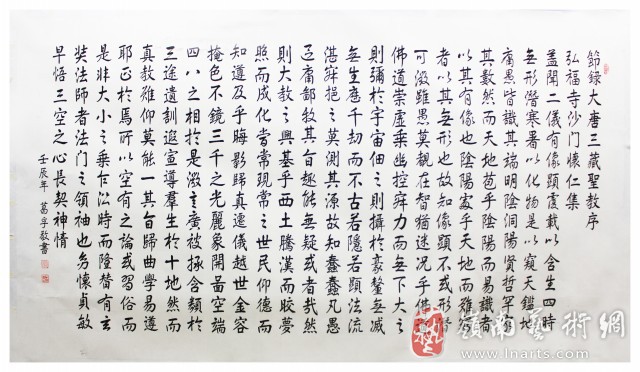 節錄大唐三藏聖教序
弘福寺沙門懷仁集
蓋聞二儀有像顯覆載以含生四時
無形潛寒暑以化物是以窺天鑑地
庸愚皆識其端明陰洞陽賢哲罕窮
其數然而天地苞乎陰陽而易識者
以其有像也陰陽處乎天地而難窮
者以其無形也故知像顯不或形潛
可徵雖愚莫覩在智猶迷況乎佛
佛道崇虛乘幽控寂力而無下大之
則彌於宇宙細之則攝於豪釐無滅
無生歷千劫而不古若隱若顯法流
湛寂挹之莫測其源故知蠢蠢凡愚
區庸鄙投其旨趣能無疑或者哉然
則大教之興基乎西土騰漢而皎夢
照而成化當常現常之世民仰德而
知遵及乎晦影歸真遷儀越世金容
掩色不鏡三千之光麗象開圖空端
四八之相於是微言廣被拯含類於
三途遺訓遐宣導羣生於十地然而
真教難仰莫能一其旨歸曲學易遵
耶正於焉所以空有之論或習俗而
是非大小之乘乍沿時而隆替有玄
奘法師者法門之領袖也幼懷貞敏
早悟三空之心長契神情
壬辰年 葛孚敬書
藝 嶺南藝術網
www.lnarts.com